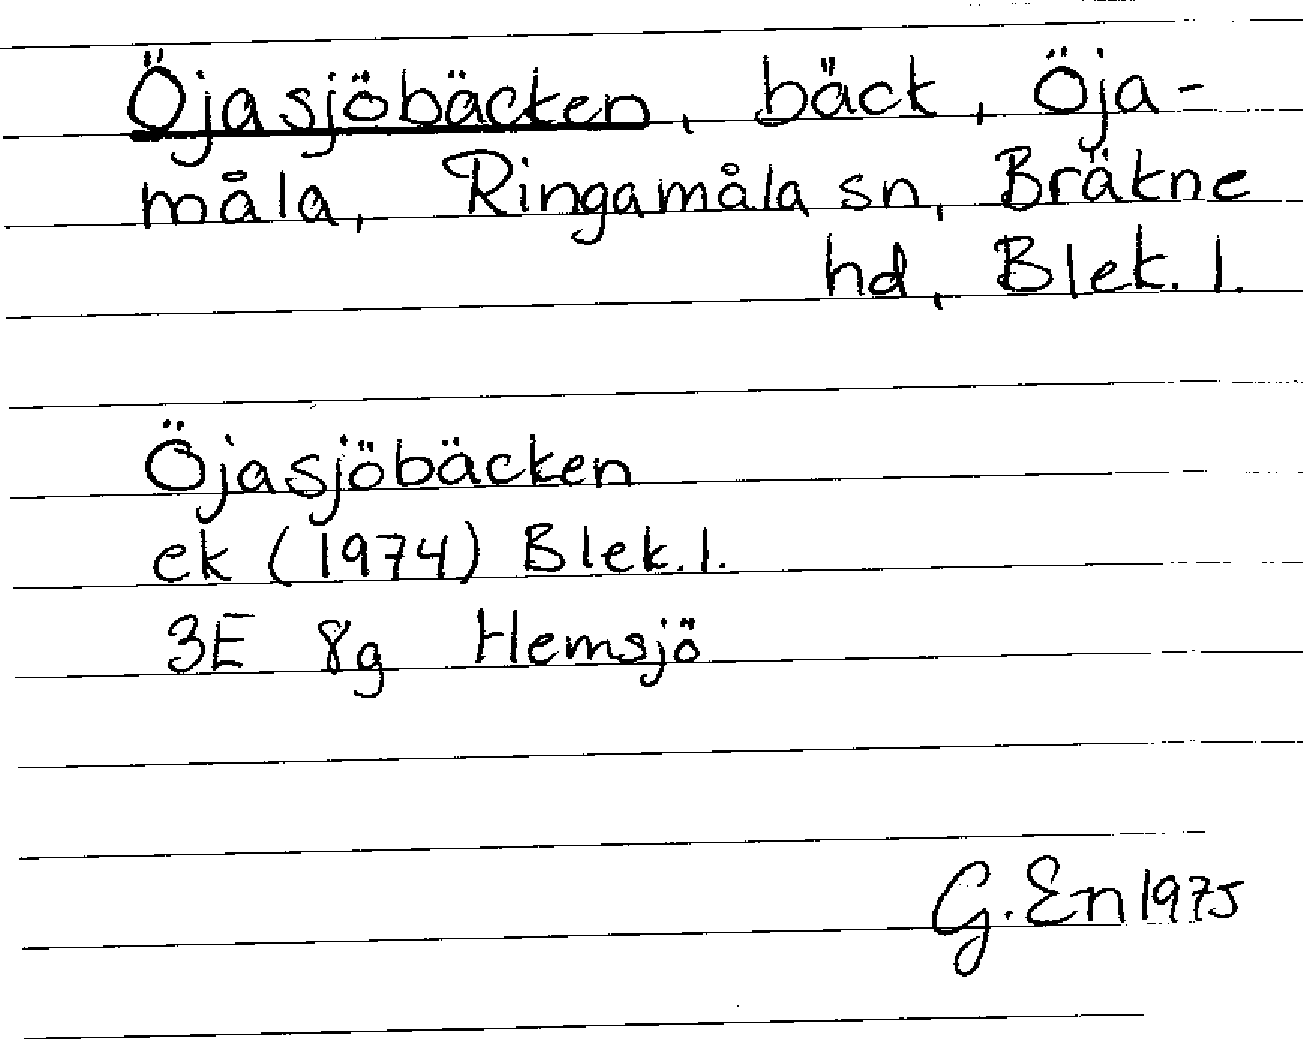 Öjasjöbäcken, bäck, Öja-
måla, Ringamåla sn, Bräkne
hd, Blek. l.
Öjasjöbäcken
ek (1974) Blek. l.
3E 8g Hemsjö
G. En 1975